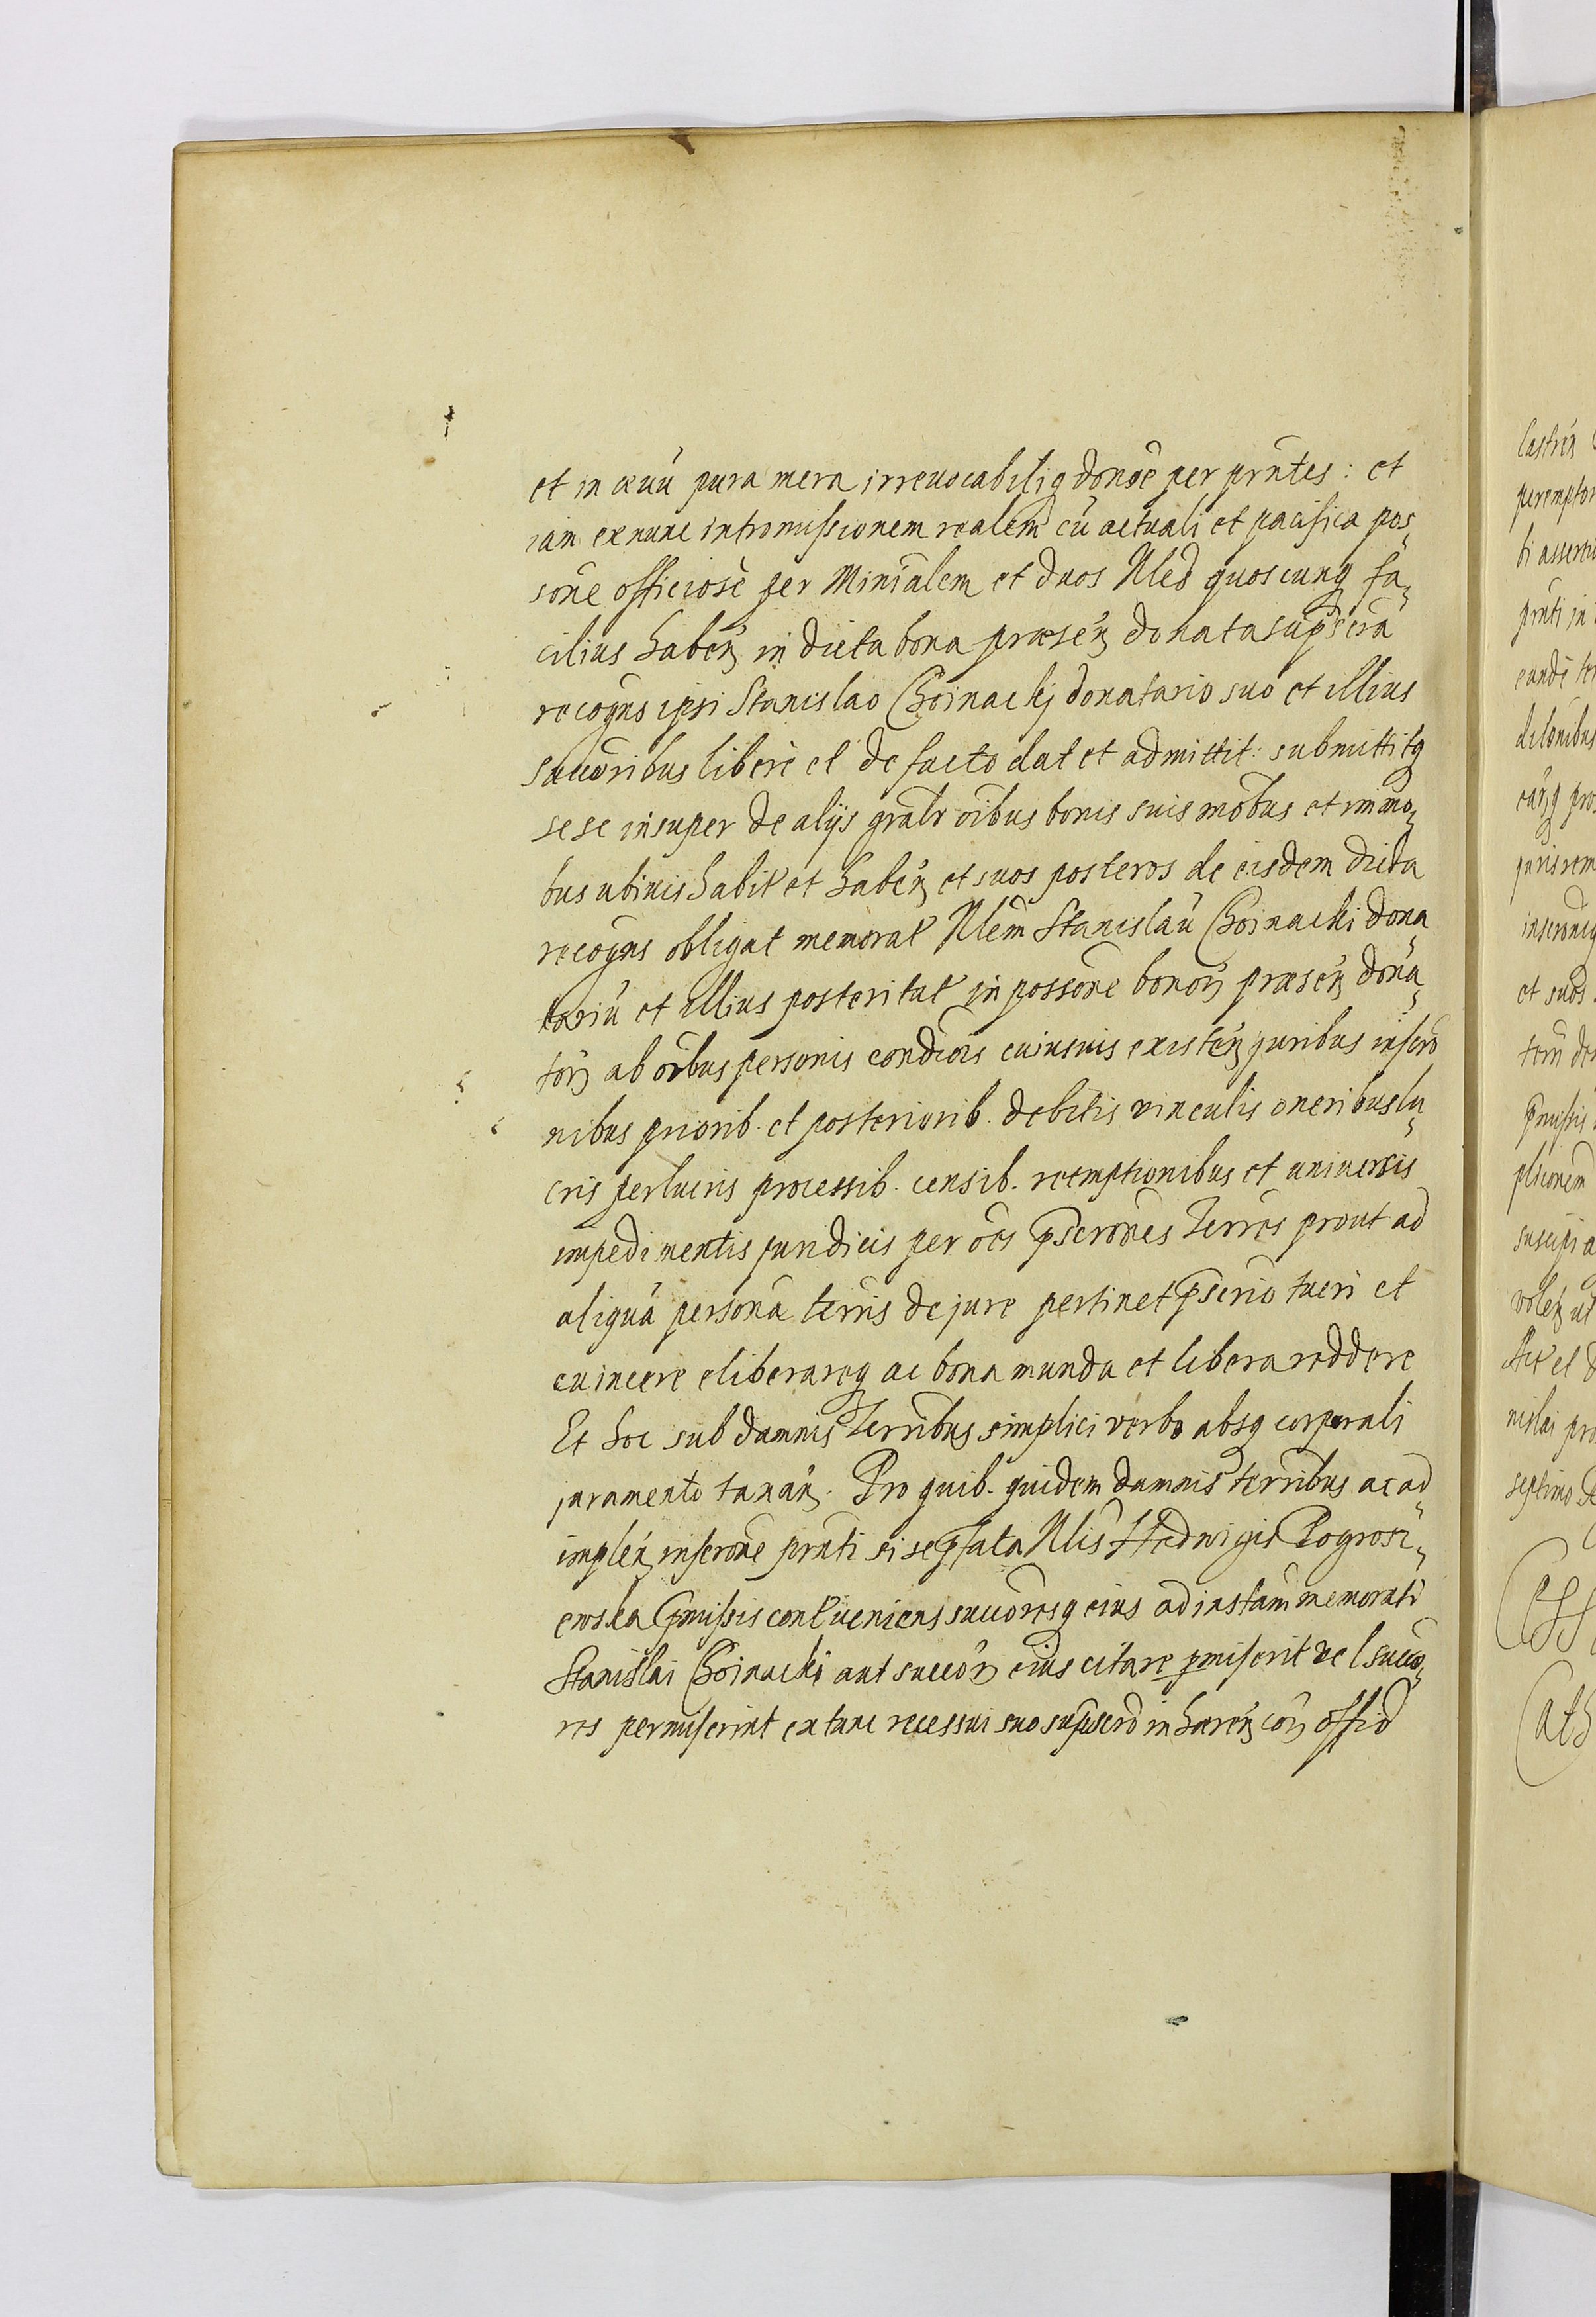 et in ævũ pura mera irreuocabiliq donõe per prñtes: et
iam exnunc intromissionem realem cũ actuali et pacifica pos„
sone officiosè per Minialem et duos Nles quoscunq fa„
cilius habeñ in dicta bona præseñ donata supsera
recogns ipsi Stanislao Choinackj donatario suo et illius
succoribus liberè et de facto dat et admittit: submittitq
sese insuper de alijs gralr oibus bonis suis mobus et immo„
bus ubiuis habit et habeñ et suos posteros de eisdem dicta
recogns obligat memorat Nlem Stanislaũ Choinacki dona„
tariũ et illius posteritat in possone bonoꝝ præseñ dona„
toꝝ ab oibus personis condiois cuiusuis existeñ juribus inscro
nibus priorib. et posteriorib. debitis vinculis oneribus lu„
cris perlucris processib. censib. reemptionibus et uniuersis
impedimentis juridicis per oes pscrones terres prout ad
aliquã personã terris de jure pertinet pscrio tueri et
euincere eliberareq ac bona munda et libera reddere
Et hoc sub damnis terribus simplici verbo absq corporali
juramento taxañ. Pro quib. quidem damnis terribus ac ad„
impleñ inscrone prñti si se pfata Nlis Hedwigis Pogrosz„
ewska pmissis contrueniens succoresq eius ad instam memorati
Stanislai Choinacki aut succoꝝ eius citare pmiserit vel succo„
res permiserint extunc recessui suo supscro in hæreñ coꝝ offid
Castreñ
peremptor
ti assertio
prñti in
eandẽ ter
dilonibus
eaꝝq pro
juris rem
inscroneq
et suos
term de
pmissis
plicionem
suscipi a
volẽ ut
Act et d
nislai pro
septimo